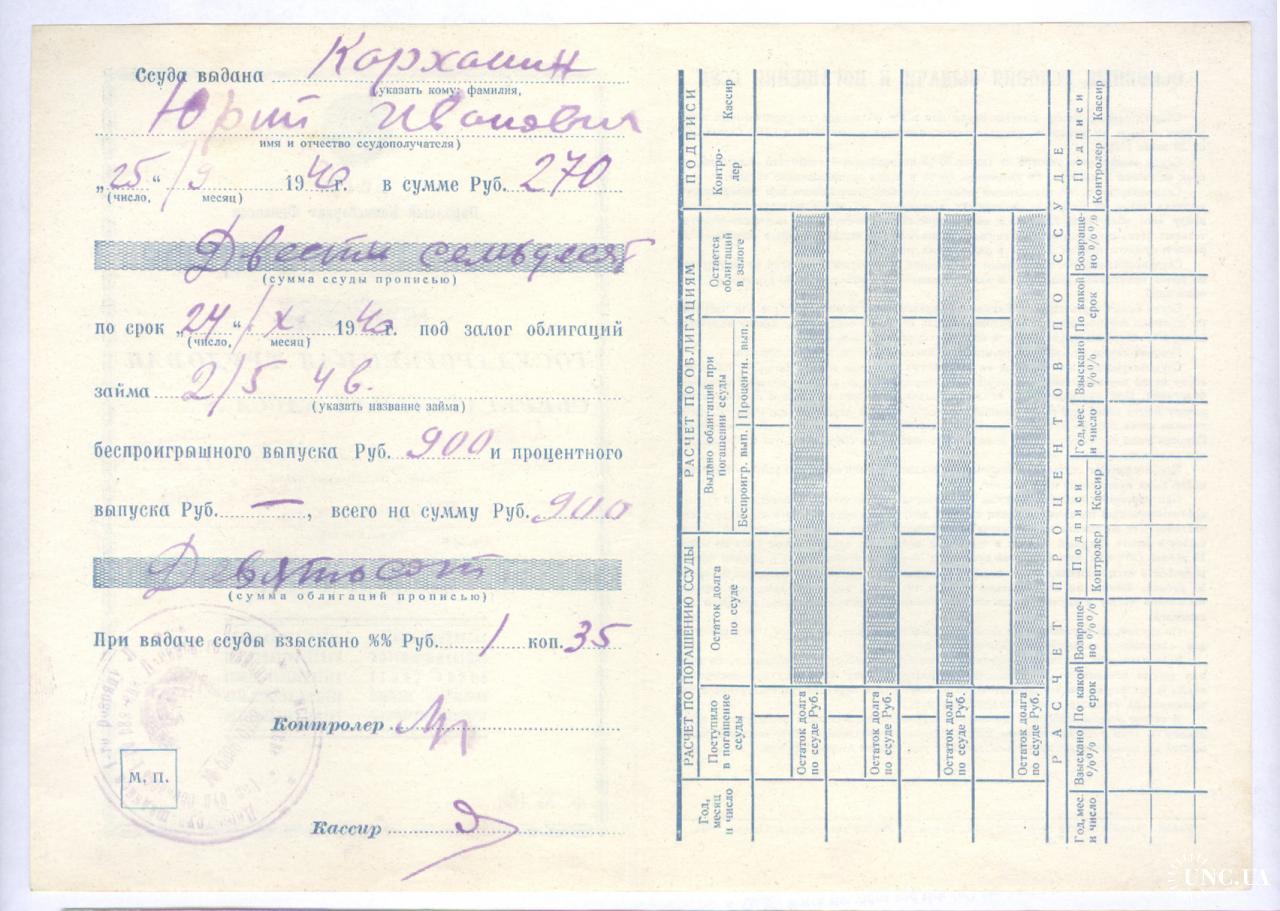 Ссуда выдана Кархалин
(указать кому: фамилия,
Юрий Иванович
имя и отчество ссудополучателя)
„25“ / 9 1940 г. в сумме Руб. 270
(число, месяц)
Двести семьдесят
(сумма ссуды прописью)
по срок „24“ / X 1940 г. под залог облигаций
(число, месяц)
займа 2/5 4 в.
(указать название займа)
беспроигрышного выпуска Руб. 900 и процентного
выпуска Руб. —, всего на сумму Руб. 900
Девятьсот
(сумма облигаций прописью)
При выдаче ссуды взыскано %% Руб. 1 коп. 35
Контролер
М. П.
Кассир
РАСЧЕТ ПО ПОГАШЕНИЮ ССУДЫ
РАСЧЕТ ПО ОБЛИГАЦИЯМ
ПОДПИСИ
Год, месяц и число
Поступило в погашение ссуды
Остаток долга по ссуде
Выдано облигаций при погашении ссуды
Беспроигр. вып.
Процентн. вып.
Остается облигаций в залоге
Контролер
Кассир
Остаток долга по ссуде Руб.
Остаток долга по ссуде Руб.
Остаток долга по ссуде Руб.
Остаток долга по ссуде Руб.
РАСЧЕТ ПРОЦЕНТОВ ПО ССУДЕ
Год, мес. и число
Взыскано %%
По какой срок
Возвращено %%
Подписи
Контролер
Кассир
Год, мес. и число
Взыскано %%
По какой срок
Возвращено %%
Подписи
Контролер
Кассир
UNC.UA